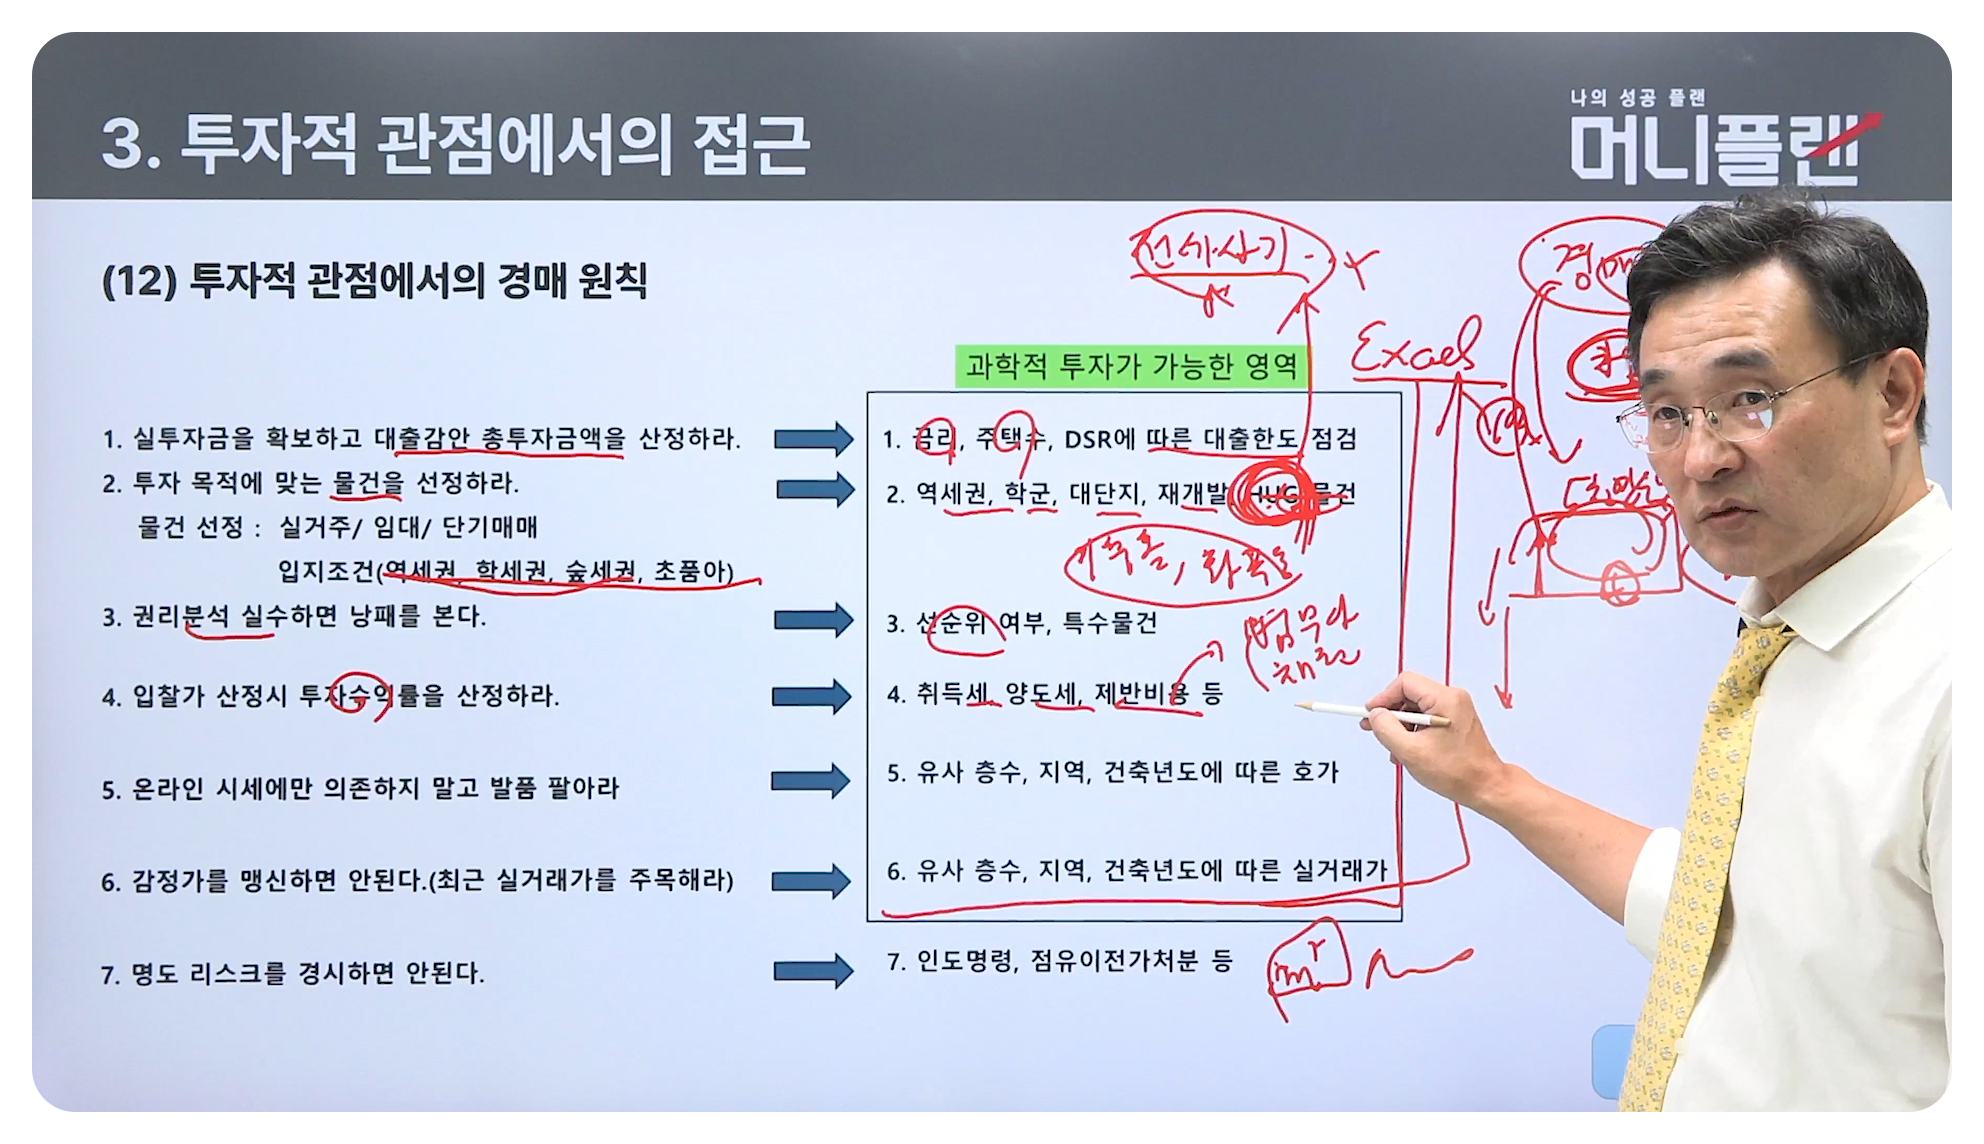 나의 성공 플랜
머니플랜
3. 투자적 관점에서의 접근
(12) 투자적 관점에서의 경매 원칙
전세사기
Excel
과학적 투자가 가능한 영역
1. 실투자금을 확보하고 대출감안 총투자금액을 산정하라.
1. 금리, 주택수, DSR에 따른 대출한도 점검
2. 투자 목적에 맞는 물건을 선정하라.
2. 역세권, 학군, 대단지, 재개발, HUG 물건
물건 선정 : 실거주/ 임대/ 단기매매
입지조건(역세권, 학세권, 숲세권, 초품아)
3. 권리분석 실수하면 낭패를 본다.
3. 선순위 여부, 특수물건
법무사
채권
4. 입찰가 산정시 투자수익률을 산정하라.
4. 취득세, 양도세, 제반비용 등
5. 온라인 시세에만 의존하지 말고 발품 팔아라
5. 유사 층수, 지역, 건축년도에 따른 호가
6. 감정가를 맹신하면 안된다.(최근 실거래가를 주목해라)
6. 유사 층수, 지역, 건축년도에 따른 실거래가
7. 명도 리스크를 경시하면 안된다.
7. 인도명령, 점유이전가처분 등